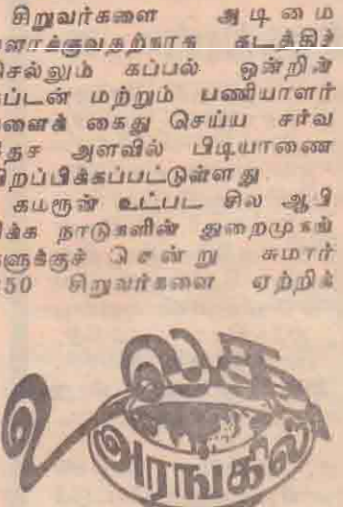 சிறுவர்களை அடிமை
ளாக்குவதற்காக கடத்திச்
செல்லும் கப்பல் ஒன்றின்
கப்டன் மற்றும் பணியாளர்
களைக் கைது செய்ய சர்வ
தேச அளவில் பிடியாணை
பிறப்பிக்கப்பட்டுள்ளது.
கமரூன் உட்பட சில ஆபி
ரிக்க நாடுகளின் துறைமுகங்
களுக்குச் சென்று சுமார்
250 சிறுவர்களை ஏற்றிக்
உலக
அரங்கில்